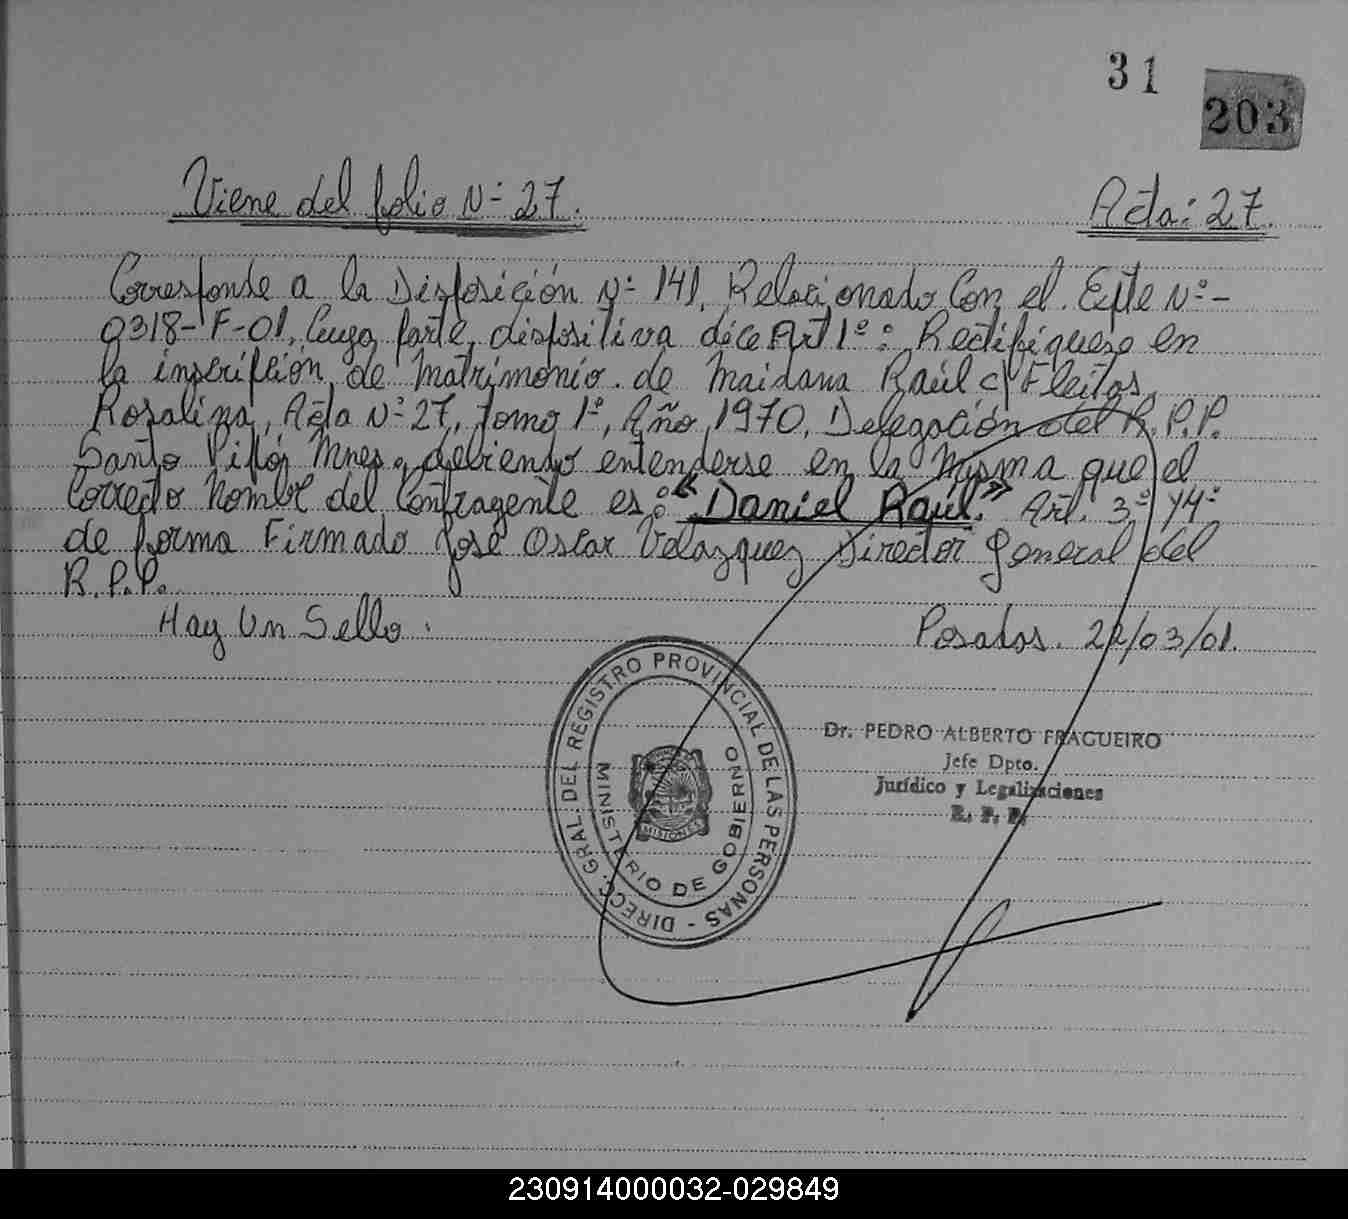 31
203
Viene del folio N= 27.
Acta: 27.
Corresponde a la Disposición N= 141. Relacionado Con el. Expte Nº-
0318-F-01, Cuya parte, dispositiva dice Art 1º: Rectifiquese en
la inscripción, de Matrimonio. de Maidana Raúl c/ Fleitas
Rosalina, Acta Nº 27, Tomo 1º, Año, 1970, Delegación del R.P.P.
Santo Pipó, Mnes, debiendo entenderse en la Misma que el
Correcto Nombre del Contrayente es: "Daniel Raúl." Art. 3º y4º
de forma Firmado José Oscar Velazquez Director General del
R.P.P.
Hay Un Sello.
Posadas. 22/03/01.
DIRECC. GRAL. DEL REGISTRO PROVINCIAL DE LAS PERSONAS -
MINISTERIO DE GOBIERNO
MISIONES
Dr. PEDRO ALBERTO FRAGUEIRO
Jefe Dpto.
Jurídico y Legalizaciones
R. P. P.
230914000032-029849